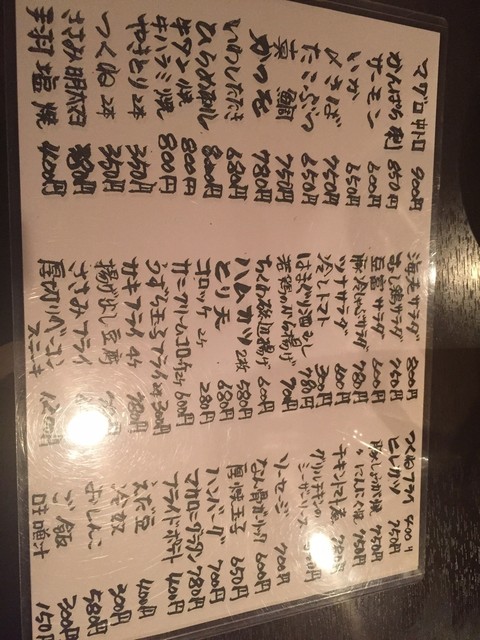 マグロ中トロ 900円
かんぱち刺 850円
サーモン 600円
いか 650円
〆さば 750円
たこぶつ 650円
真鯛 750円
かつを 780円
いわしたたき 680円
ひらめ刺し 800円
牛タン焼 800円
牛ハラミ焼 800円
やきとり 2本 360円
つくね 2本 360円
ささみ明太
手羽塩焼 400円
海老サラダ 800円
むし鶏サラダ 750円
豆富サラダ 600円
豚冷しゃぶサラダ 780円
ツナサラダ 600円
冷しトマト 300円
はまぐり酒むし 780円
若鶏のから揚げ 700円
ちくわ磯辺揚げ 600円
ハムカツ 2枚 580円
とり天 680円
コロッケ 2ケ 280円
カニクリームコロッケ 2ケ 600円
うずら玉子フライ 2本 300円
カキフライ 4ケ 780円
揚げ出し豆腐
ささみフライ
厚切りベーコンステーキ 1,200円
つくねフライ 400円
ヒレカツ 750円
豚肉しょうが焼 750円
〃 にんにく焼 750円
チキントマト煮
グリルチキンの
ソーセージ 700円
なん骨ガーリック 600円
厚焼玉子 650円
ハンバーグ 700円
マカロニグラタン 780円
フライドポテト 400円
えだ豆 400円
冷奴 300円
おしんこ 580円
ご飯 300円
味噌汁 150円